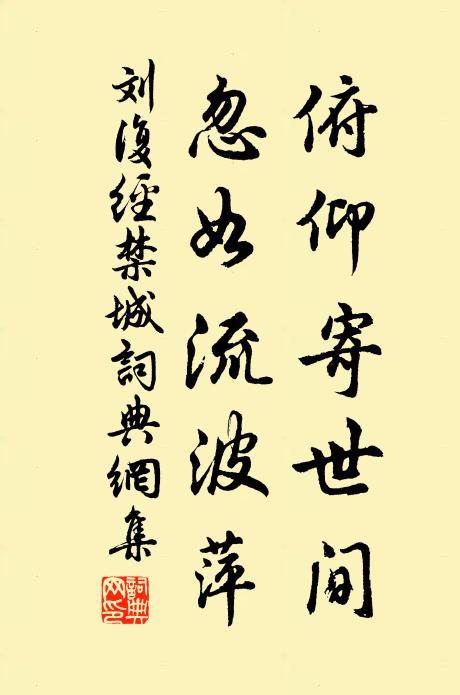 俯仰寄世间
忽如流波萍
刘復經禁城詞典網集
詞典网印